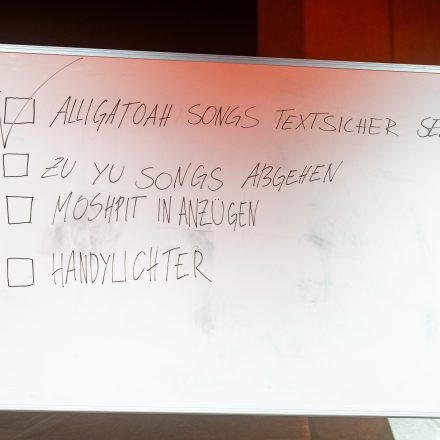 ALLIGATOAH SONGS TEXTSICHER
ZU YU SONGS ABGEHEN
MOSHPIT IN ANZÜGEN
HANDYLICHTER